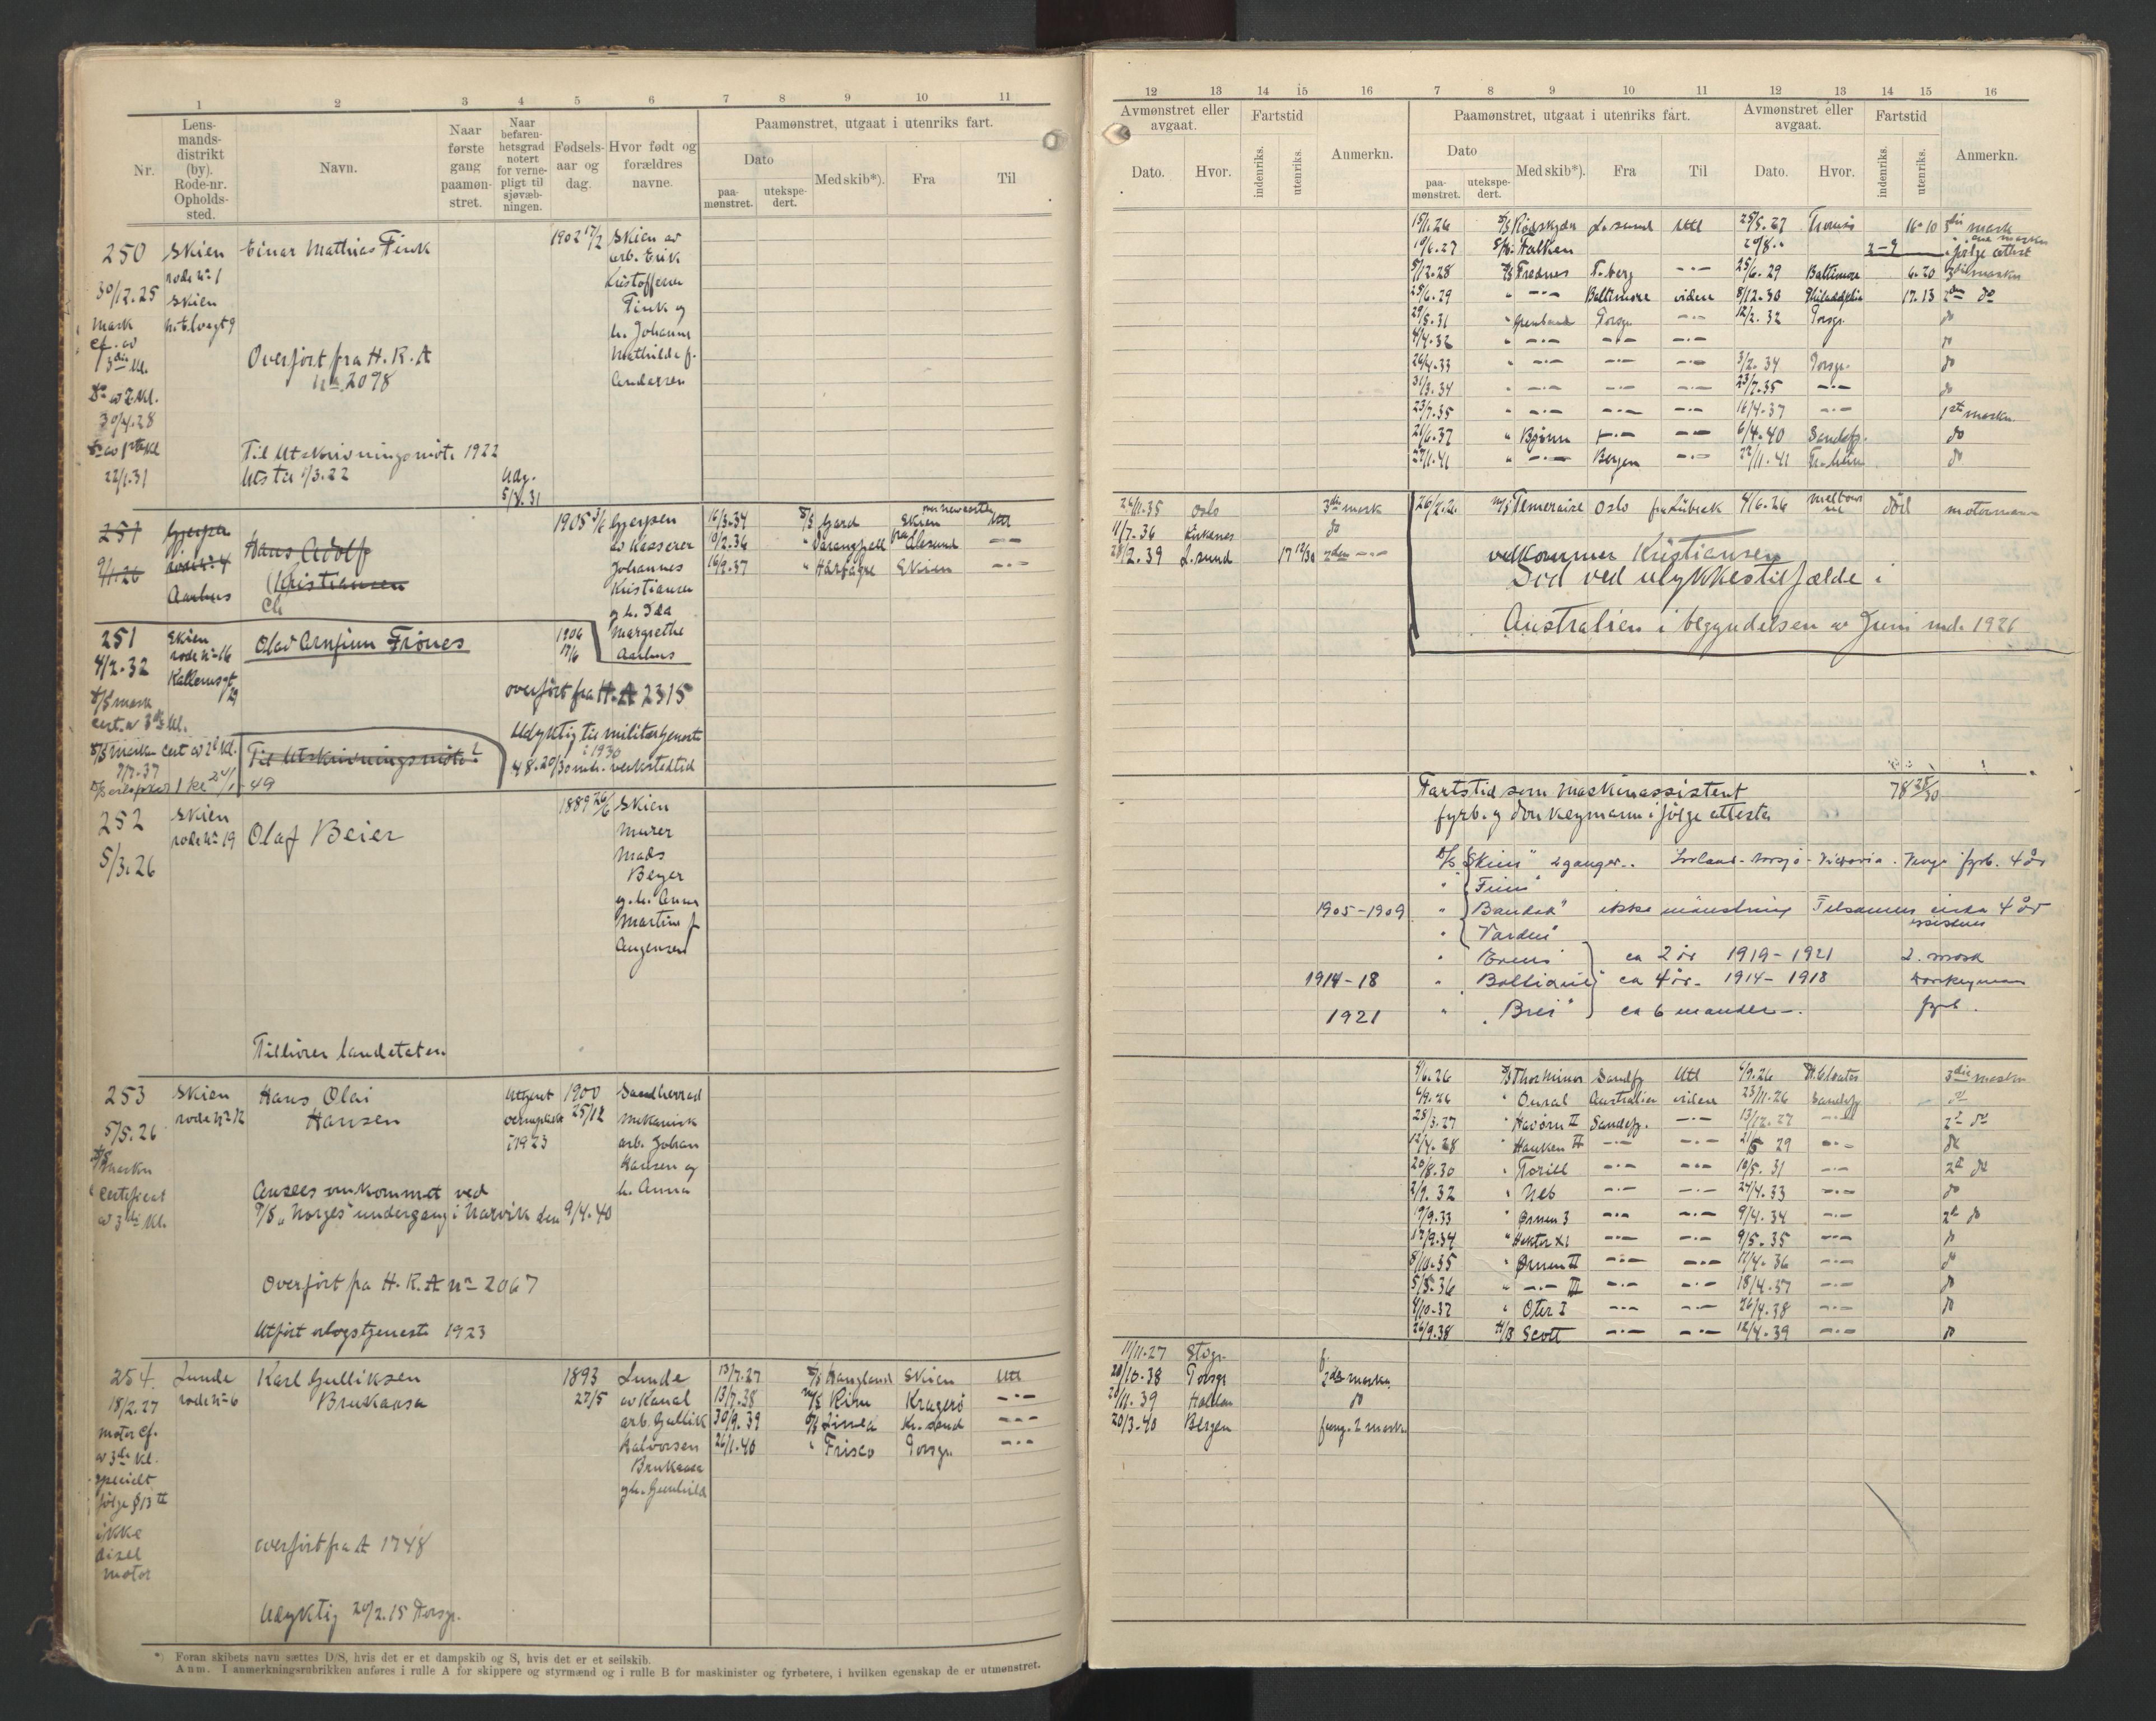 1 2 3 4 5 6 7 8 9 10 11
Nr.
Lens-
mands-
distrikt
(by).
Rode-nr.
Opholds-
sted.
Navn.
Naar
første
gang
paamøn-
stret.
Naar
befaren-
hetsgrad
notert
for verne-
pligt til
sjøvæb-
ningen.
Fødsels-
aar og
dag.
Hvor født og
forældres
navne.
Paamønstret, utgaat i utenriks fart.
Dato
paa-
mønstret.
utekspe-
dert.
Med skib*).
Fra
Til
250 Skien Einar Mathias Fink 1902 17/2 Skien av
rode no 1 arb. Erik
30/12.25 Skien Kristoffersen
Fink og
mark h. Johanne
cf. av Mathilde f.
3die kl. Overført fra H. R. A Andersen
no 2098
do av 2. kl.
30/4.28
do av 1ste kl
22/1.31
Til Utskrivningsmøte 1922
Uts til 1/3.22 Udy.
5/8.31
251 Gjerpen Hans Adolf Kristiansen 1905 3/6 Gjerpen
9/1.26 rode no 4 av Kasserer
Aarhus Johannes
Kristiansen
og h. Ida
Margrethe
Aarhus
16/3.34 D/S Gard Skien Utl
10/2.36 " Varangfjell fra Ålesund —"—
16/2.37 " Hårfagre Skien —"—
251 Skien Olav Arnfinn Frönes 1906
4/2.32 rode no 16 17/6
D/S mask
cert. av 3die kl.
overført fra H. A 2315
Udyktig til militærtjeneste
i 1930
48.20/30 mdr. verkstedtid
D/S maskn cert av 2 kl.
7/7.37
Til Utskrivningsmøte
252 Skien Olaf Beier 1889 26/6 Skien
rode no 19 Murer
5/3.26 Mads
Beyer
og h. Anne
Martine f
Tilhører landetaten
253 Skien Hans Olai 1900 Sandherred
rode no 12 Hansen 25/12 mekanisk
5/5.26 arb. Johan
Hansen og
h. Anna
Utført
verneplikt
i 1923
D/S
maskn
Certificat
av 3die kl.
Ansees omkommet ved
D/S „Norges" undergang i Narvik den 9/4.40
Overført fra H. R. A no 2067
Utført orlogstjeneste 1923
254. Lunde Karl Gulliksen 1893 Lunde
18/2.27 rode no 6 Brukaasa 27/5 av Kanal
arb. Gullik
Halvorsen
Brukaasa
og h. Gunhild
13/7.27 D/S Hangland Skien Utl
13/7.38 M/S Rimu Kragerö —"—
30/9.39 D/S Linnea Kr. sand —"—
26/1.40 " Frisco Porsgr. —"—
motor cf.
av 3die kl.
specielt
følge § 13 II
ikke
disel
motor
overført fra A 1748
Udyktig 20/2.15 Porsgr.
*) Foran skibets navn sættes D/S, hvis det er et dampskib og S, hvis det er et seilskib.
Anm. I anmerkningsrubrikken anføres i rulle A for skippere og styrmænd og i rulle B for maskinister og fyrbøtere, i hvilken egenskap de er utmønstret.
12 13 14 15 16 7 8 9 10 11 12 13 14 15 16
Avmønstret eller
avgaat.
Dato.
Hvor.
Fartstid
indenriks.
utenriks.
Anmerkn.
Paamønstret, utgaat i utenriks fart.
Dato
paa-
mønstret.
utekspe-
dert.
Med skib*).
Fra
Til
Avmønstret eller
avgaat.
Dato.
Hvor.
Fartstid
indenriks.
utenriks.
Anmerkn.
15/1.26 D/S Rödskjær L. sund Utl 25/5.27 Tromsö 16-10 3die mask
10/6.27 S/S Falken 20/8." 2-9 ifølge attest
5/12.28 D/S Frednes T. berg —"— 25/6.29 Baltimore 6.20 3die maskn
25/6.29 " —"— Baltimore videre 8/12.30 Philadelphia 17.13 2den do
29/5.31 " Grenland Porsgr. —"— 12/2.32 Porsgr. do
4/4.32 " —"— —"— —"— do
26/4.33 " —"— —"— —"— 3/2.34 Porsgr. do
31/3.34 " —"— —"— —"— 23/7.35 —"— do
23/7.35 " —"— —"— —"— 16/4.37 —"— 1ste maskn
21/6.37 " Björnn —"— —"— 6/4.40 Sandefj. do
27/1.41 " —"— Bergen —"— 22/11.41 do
26/11.35 Oslo 3die mask
11/7.36 Kirkenes do
2/2.39 L. sund 17 12/30 2den —"—
26/2.26 M/S Temeraire Oslo fra Lübeck 4/6.26 Melbourne död motormann
vedkommer Kristiansen
Död ved ulykkestilfælde i
Australien i begyndelsen av Juni md. 1926
Fartstid som maskinassistent 78 28/30
fyrb. og donkeymann ifølge attester
D/S „Skien" 2 ganger.. Inland - Norsjö - Victoria. fyrb. 4 år
" Bandak" ikke mönstring Tilsammen cirka 4 år
1905-1909
" Varden"
" ca 2 år 1919-1921 2. mask
1914-18 " ca 4 år. 1914-1918 Donkeyman
1921 " „Brei" ca 6 maander —. fyrb.
4/6.26 D/S Thor Minor Sandefj Utl 4/9.26 3die maskn
4/9.26 " Oural Australien videre 23/11.26 Sandefj do
25/3.27 " Havörn II Sandefj. —"— 13/12.27 —"— 2 do
12/4.28 " Hauken II —"— —"— 21/5 29 —"— do
20/8.30 " Torill —"— —"— 10/5.31 —"— 2d do
2/9.32 " Neb —"— —"— 24/4.33 —"— do
19/9.33 " Ørnen 3 —"— —"— 9/4.34 —"— 2d do
12/9.34 " Hektor XI —"— —"— 9/5.35 —"— do
8/10.35 " Ørnen II —"— —"— 11/4.36 —"— do
5/8.36 " —"— III —"— —"— 18/4.37 —"— do
4/10.37 " Oter I —"— —"— 26/4.38 —"— do
26/9.38 H/B Scott —"— —"— 12/4.39 —"— do
11/11.27 Stvgr.
20/10.38 Porsgr 2den maskn
20/11.39 Halden do
20/3.40 Bergen fung. 2 maskn